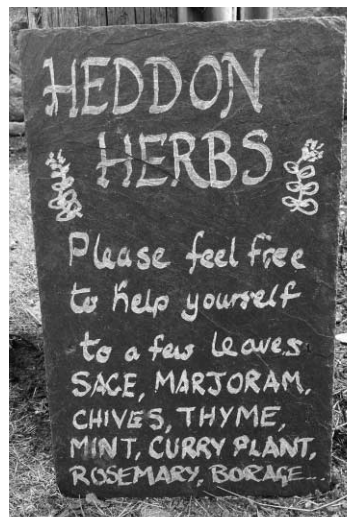 HEDDON
HERBS
Please feel free
to help yourself
to a few leaves
SAGE, MARJORAM,
CHIVES, THYME,
MINT, CURRY PLANT,
ROSEMARY, BORAGE...